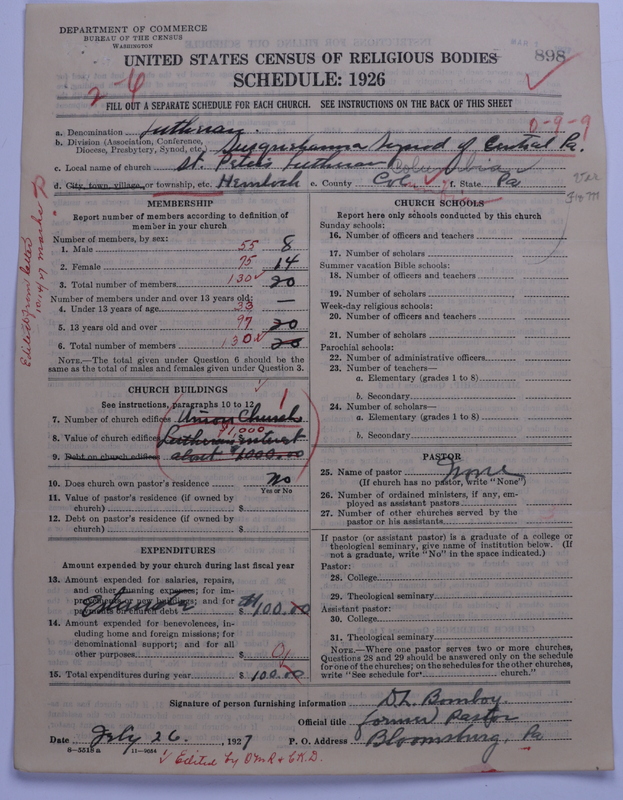 DEPARTMENT OF COMMERCE
BUREAU OF THE CENSUS
WASHINGTON
UNITED STATES CENSUS OF RELIGIOUS BODIES
898
SCHEDULE: 1926
2-6
FILL OUT A SEPARATE SCHEDULE FOR EACH CHURCH. SEE INSTRUCTIONS ON THE BACK OF THIS SHEET
0-9-9
a. Denomination Lutheran.
b. Division (Association, Conference, Diocese, Presbytery, Synod, etc.) Susquehanna Synod of Central Pa.
c. Local name of church St. Peter's Lutheran
Columbia
d. City, town, village, or township, etc. Hemlock e. County Col. f. State Pa
MEMBERSHIP
Report number of members according to definition of
member in your church
Number of members, by sex:
1. Male 55 8
2. Female 75 14
3. Total number of members 130 20
Number of members under and over 13 years old:
4. Under 13 years of age 33 —
5. 13 years old and over 97 20
6. Total number of members 130 20
NOTE.—The total given under Question 6 should be the
same as the total of males and females given under Question 3.
CHURCH BUILDINGS
See instructions, paragraphs 10 to 12
7. Number of church edifices Union Church 1
8. Value of church edifices Lutheran interest $1,000
9. Debt on church edifices about $1000.00
10. Does church own pastor's residence No
Yes or No
11. Value of pastor's residence (if owned by
church) $
12. Debt on pastor's residence (if owned by
church) $
EXPENDITURES
Amount expended by your church during last fiscal year
13. Amount expended for salaries, repairs,
and other running expenses; for im-
provements or new buildings; and for
payments on church debt $100.00
14. Amount expended for benevolences, in-
cluding home and foreign missions; for
denominational support; and for all
other purposes $
15. Total expenditures during year $ 100.00
CHURCH SCHOOLS
Report here only schools conducted by this church
Sunday schools:
16. Number of officers and teachers
17. Number of scholars
Summer vacation Bible schools:
18. Number of officers and teachers
19. Number of scholars
Week-day religious schools:
20. Number of officers and teachers
21. Number of scholars
Parochial schools:
22. Number of administrative officers
23. Number of teachers—
a. Elementary (grades 1 to 8)
b. Secondary
24. Number of scholars—
a. Elementary (grades 1 to 8)
b. Secondary
PASTOR
25. Name of pastor None
(If church has no pastor, write "None")
26. Number of ordained ministers, if any, em-
ployed as assistant pastors
27. Number of other churches served by the
pastor or his assistants
If pastor (or assistant pastor) is a graduate of a college or
theological seminary, give name of institution below. (If
not a graduate, write "No" in the space indicated.)
Pastor:
28. College
29. Theological seminary
Assistant pastor:
30. College
31. Theological seminary
NOTE.—Where one pastor serves two or more churches,
Questions 28 and 29 should be answered only on the schedule
for one of the churches; on the schedules for the other churches,
write "See schedule for church."
Signature of person furnishing information D.L. Bomboy
Official title former Pastor
Date July 26, 1927 P. O. Address Bloomsburg, Pa
8-5518a 11-9684
Edited by